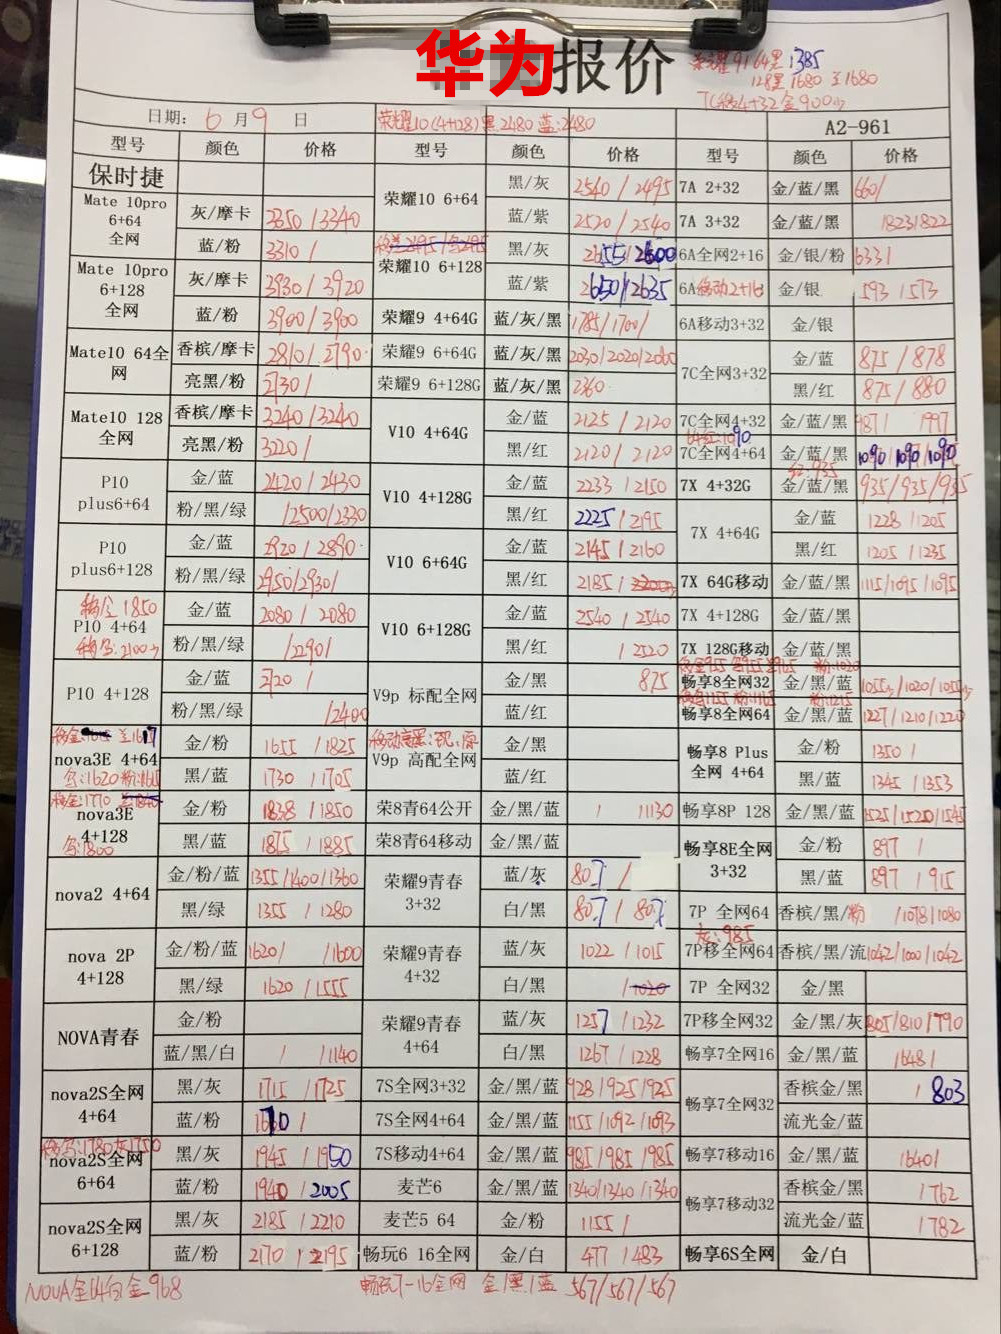 华为报价
荣耀9i 64黑1385
128黑1680 蓝1680
日期: 6月9日 荣耀10(4+128)黑:2480 蓝:2480 A2-961
型号 颜色 价格 型号 颜色 价格 型号 颜色 价格
保时捷 荣耀10 6+64 黑/灰 2540/2495 7A 2+32 金/蓝/黑 660/
Mate 10pro 6+64 全网 灰/摩卡 3350/3340 蓝/紫 2520/2540 7A 3+32 金/蓝/黑 1823/822
蓝/粉 3310/ 荣耀10 6+128 黑/灰 2655/2600 6A全网2+16 金/银/粉 633/
Mate 10pro 6+128 全网 灰/摩卡 3930/3920 蓝/紫 2650/2635 6A移动2+16 金/银 593/573
蓝/粉 3900/3900 荣耀9 4+64G 蓝/灰/黑 1785/1700/ 6A移动3+32 金/银
Mate10 64全网 香槟/摩卡 2810/2790 荣耀9 6+64G 蓝/灰/黑 2030/2020/2060 7C全网3+32 金/蓝 875/878
亮黑/粉 2730/ 荣耀9 6+128G 蓝/灰/黑 2360 黑/红 875/880
Mate10 128全网 香槟/摩卡 3240/3240 V10 4+64G 金/蓝 2125/2120 7C全网4+32 金/蓝/黑 987/ 1997
亮黑/粉 3220/ 黑/红 2120/2120 7C全网4+64 金/蓝/黑 1090/1090/1090
P10 plus6+64 金/蓝 2420/2430 V10 4+128G 金/蓝 2233/2150 7X 4+32G 金/蓝/黑 935/935/935
粉/黑/绿 /2500/2330 黑/红 2225/2195 7X 4+64G 金/蓝 1228/1205
P10 plus6+128 金/蓝 2920/2890 V10 6+64G 金/蓝 2145/2160 黑/红 1205/1235
粉/黑/绿 2950/2930/ 黑/红 2185/ 7X 64G移动 金/蓝/黑 1115/1095/1095
P10 4+64 金/蓝 2080/2080 V10 6+128G 金/蓝 2540/2540 7X 4+128G 金/蓝/黑
粉/黑/绿 /2290/ 黑/红 /2520 7X 128G移动 金/蓝/黑
P10 4+128 金/蓝 2120/ V9p 标配全网 金/黑 875 畅享8全网32 金/黑/蓝 1055/1020/1055
粉/黑/绿 /2400 蓝/红 畅享8全网64 金/黑/蓝 1227/1210/1220
nova3E 4+64 金/粉 1655/1825 V9p 高配全网 金/黑 畅享8 Plus 全网 4+64 金/粉 1350/
黑/蓝 1730/1705 蓝/红 黑/蓝 1345/1353
nova3E 4+128 金/粉 1838/1850 荣8青64公开 金/黑/蓝 / /1130 畅享8P 128 金/黑/蓝 1525/1520/1545
黑/蓝 1875/1885 荣8青64移动 金/黑/蓝 畅享8E全网 3+32 金/粉 897/
nova2 4+64 金/粉/蓝 1355/1400/1360 荣耀9青春 3+32 蓝/灰 807/ 黑/蓝 897/915
黑/绿 1355/1280 白/黑 807/807 7P 全网64 香槟/黑/粉 /1078/1080
nova 2P 4+128 金/粉/蓝 1620/ /1600 荣耀9青春 4+32 蓝/灰 1022/1015 7P移全网64 香槟/黑/流 1042/1000/1042
黑/绿 1620/1555 白/黑 /1020 7P 全网32 金/黑
NOVA青春 金/粉 荣耀9青春 4+64 蓝/灰 1257/1232 7P移全网32 金/黑/灰 805/810/790
蓝/黑/白 / /1140 白/黑 1267/1228 畅享7全网16 金/黑/蓝 1648/
nova2S全网 4+64 黑/灰 1715/1725 7S全网3+32 金/黑/蓝 928/925/925 畅享7全网32 香槟金/黑 /803
蓝/粉 1670/ 7S全网4+64 金/黑/蓝 1155/1092/1093 流光金/蓝
nova2S全网 6+64 黑/灰 1945/1950 7S移动4+64 金/黑/蓝 985/985/985 畅享7移动16 金/黑/蓝 1640/
蓝/粉 1940/2005 麦芒6 金/黑/蓝 1340/1340/1340 畅享7移动32 香槟金/黑 /762
nova2S全网 6+128 黑/灰 2185/2210 麦芒5 64 金/粉 1155/ 流光金/蓝 /782
蓝/粉 2170/2195 畅玩6 16全网 金/白 477/483 畅享6S全网 金/白
NOVA全64白金968 畅玩7-16全网 金/黑/蓝 567/567/567